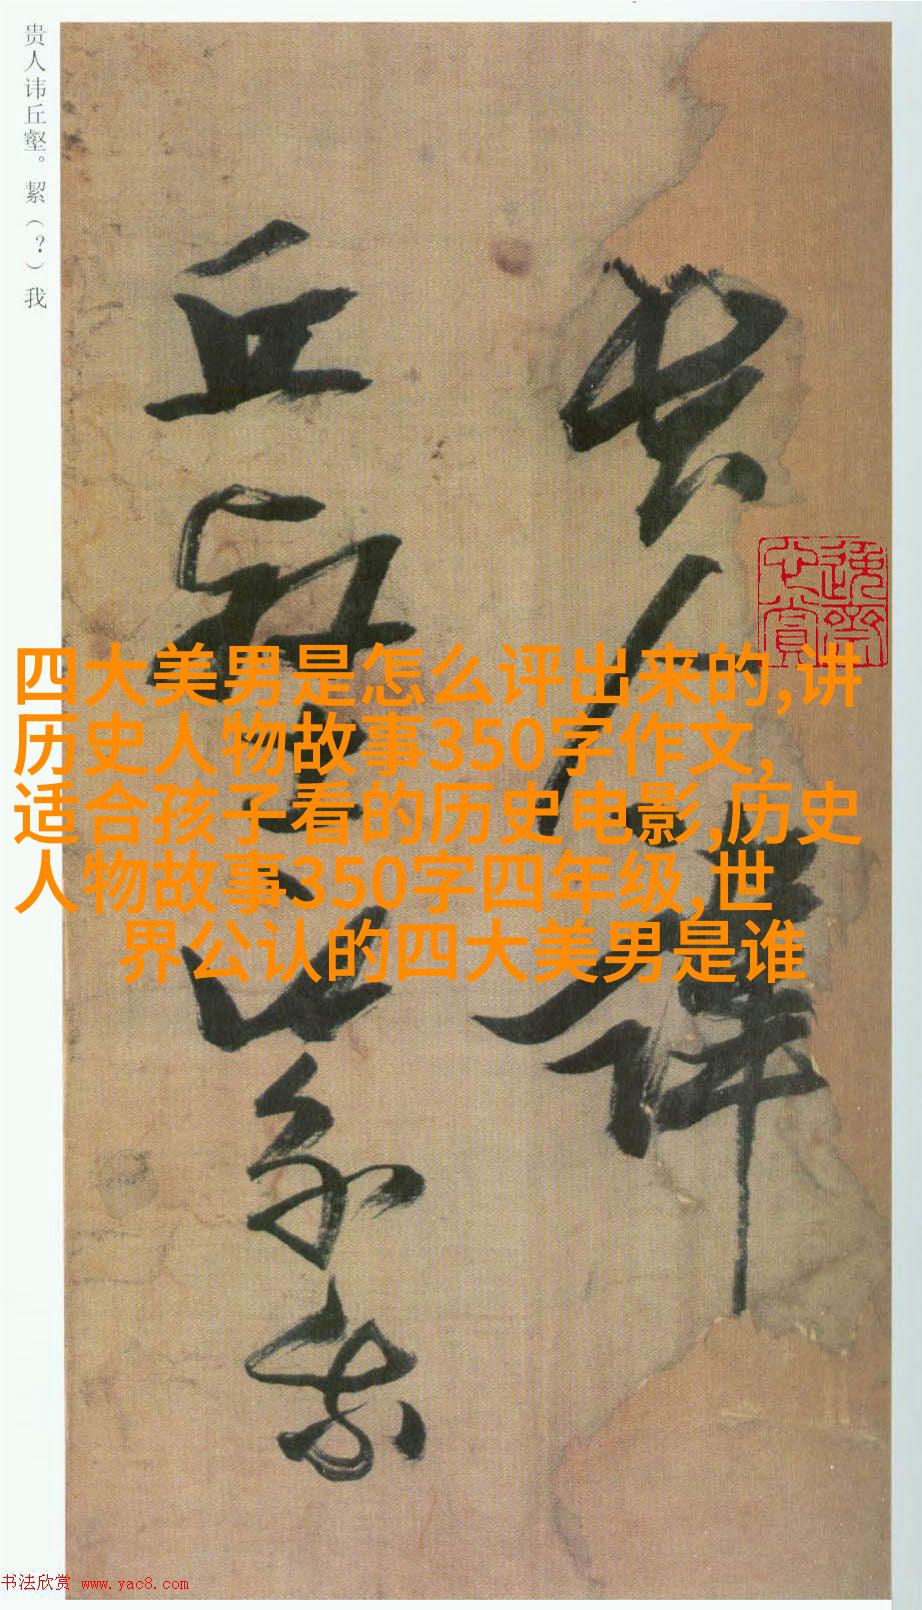 贵人讳丘壑。絜（？）我
贵人讳
丘壑絜我
四大美男是怎么评出来的,讲
历史人物故事350字作文,
适合孩子看的历史电影,历史
人物故事350字四年级,世
界公认的四大美男是谁
书法欣赏 www.yac8.com